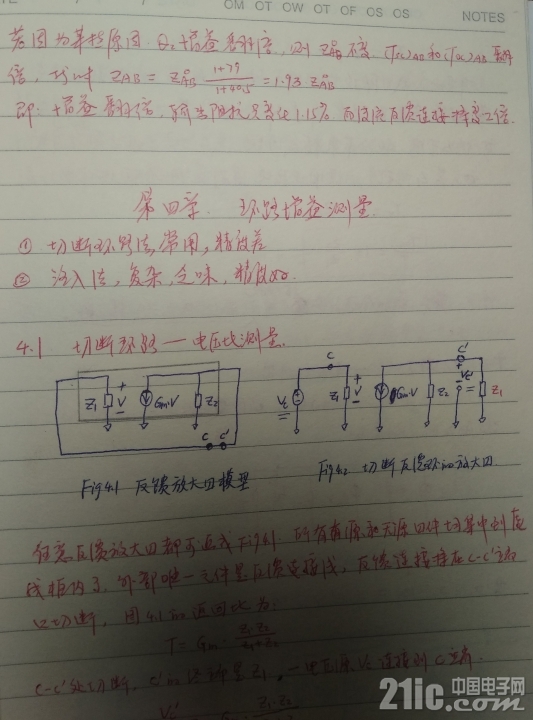 OM OT OW OT OF OS OS
NOTES
若因为某种原因 Q₂ 增益翻倍, 则 Z⁰AB 不变, (Tsc)AB 和 (Toc)AB 翻
倍, 此时 ZAB = Z⁰AB (1+79)/(1+40.5) = 1.93 Z⁰AB
即: 增益翻倍, 输出阻抗只变化 1.15%
第四章 环路增益测量
① 切断环路法, 常用, 精度差
② 注入法, 复杂, 乏味, 精度好.
4.1 切断环路 — 电压比测量.
Z₁ + V - Gm·V Z₂ C C'
Vc C Z₁ + V - Gm·V Z₂ C' + Vc' - Z₁
Fig 4.1 反馈放大器模型
Fig 4.2 切断反馈环的放大器
任意反馈放大器都可近成 Fig 4.1 所有有源和无源器件均集中到虚
线框内了. 外部唯一元件是反馈连接线, 反馈连接线在 C-C' 之间
切断, 图 4.1 的返回比为:
T = Gm · Z₁Z₂/(Z₁+Z₂)
C-C' 处切断, C' 的终端是 Z₁, 一电压源 Vc 连接到 C 端.
Vc' Z₁·Z₂
21ic 中国电子网
21ic.com